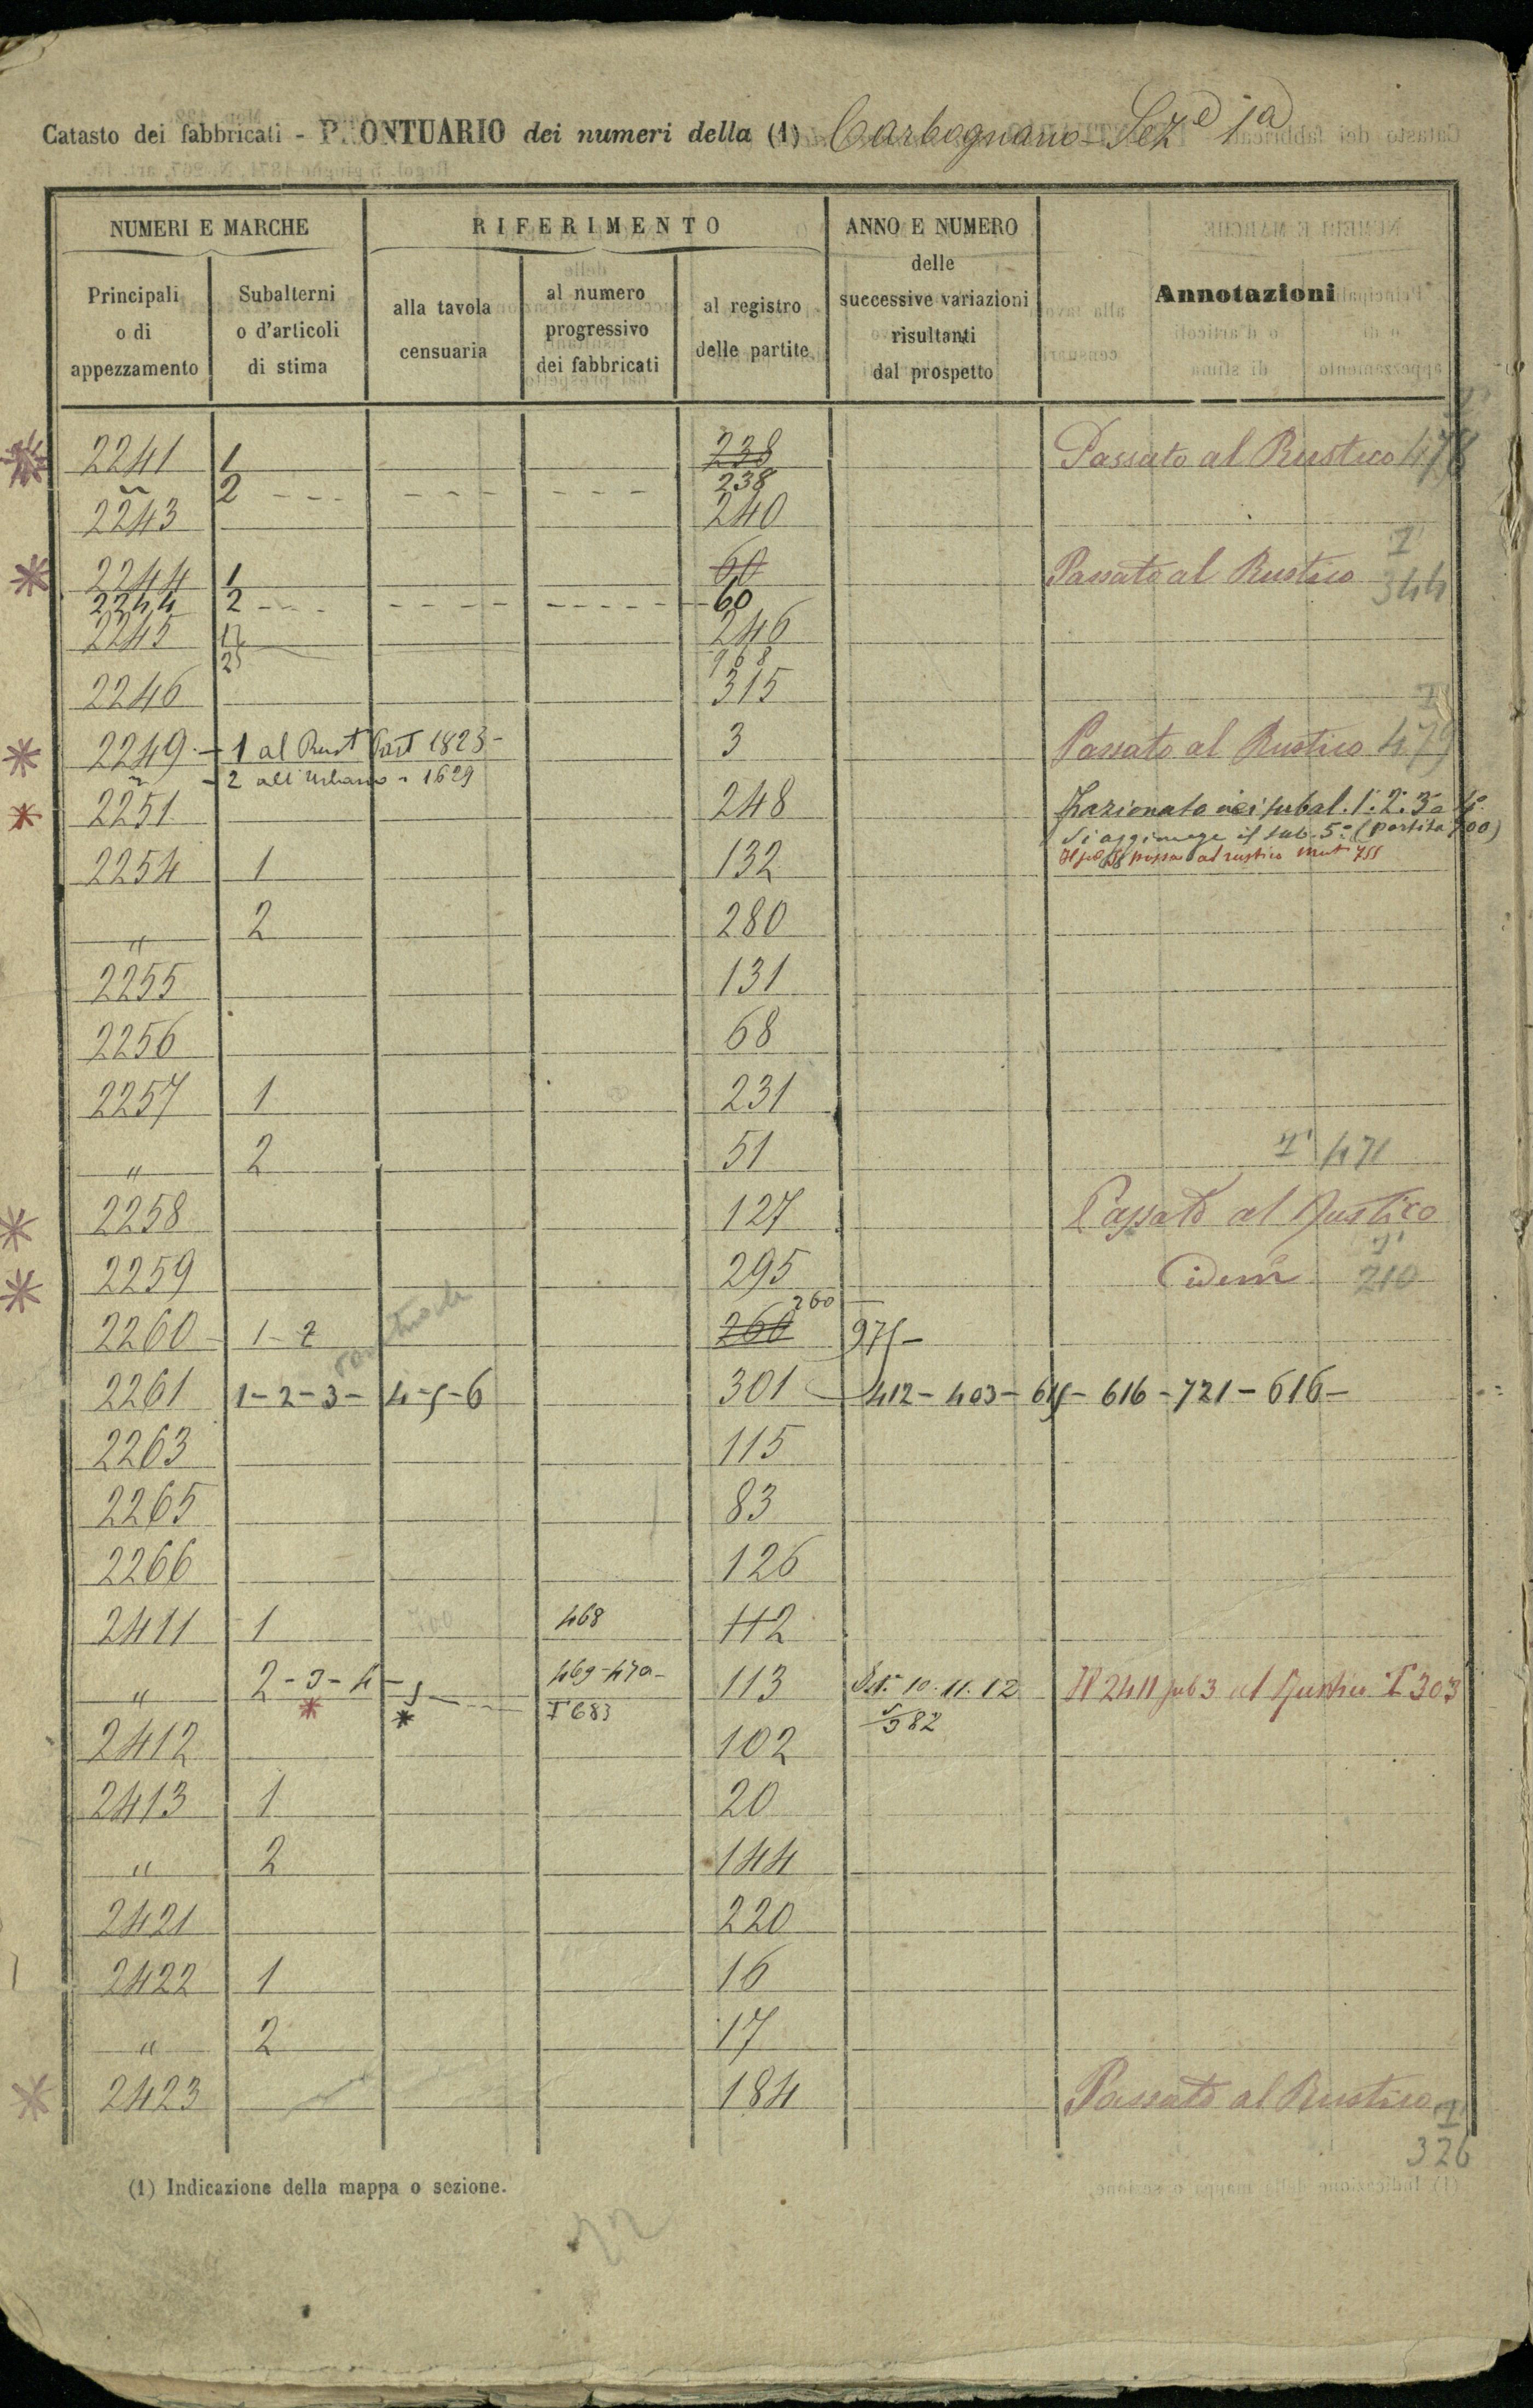 Catasto dei fabbricati - PRONTUARIO dei numeri della (1) Carbognano - Sez.e 1a
NUMERI E MARCHE
RIFERIMENTO
ANNO E NUMERO
delle
successive variazioni
risultanti
dal prospetto
Annotazioni
Principali
o di
appezzamento
Subalterni
o d'articoli
di stima
alla tavola
censuaria
al numero
progressivo
dei fabbricati
al registro
delle partite
2241 1 238 Passato al Rustico 478
" 2 - - - - - - - - - 238
2243 240
2244 1 60 Passato al Rustico I 344
2244 2 - - - - - - - - - 60
2245 1 246
2 968
2246 315
2249 - 1 al Rust Part 1823 - 3 Passato al Rustico 479
" - 2 all'Urbano " 1629
2251 248 frazionato nei subal. 1.° 2.° 3° a 4°
Si aggiunge il sub. 5° (partita 700)
passa al rustico 755
2254 1 132
" 2 280
2255 131
2256 68
2257 1 231
" 2 51 I 471
2258 127 Passato al Rustico
2259 295 Idem I 210
2260 - 1 - 2 260 260 975 -
2261 1 - 2 - 3 - 4 - 5 - 6 301 412 - 403 - 615 - 616 - 721 - 616 -
2263 115
2265 83
2266 126
2411 1 700 468 112
" 2 - 3 - 4 - 5 - - - 469 - 470 - 113 10. 11. 12 Il 2411 sub 3 al Rustico I 303
I 683 582
2412 102
2413 1 20
" 2 144
2421 220
2422 1 16
" 2 17
2423 184 Passato al Rustico I
326
(1) Indicazione della mappa o sezione.